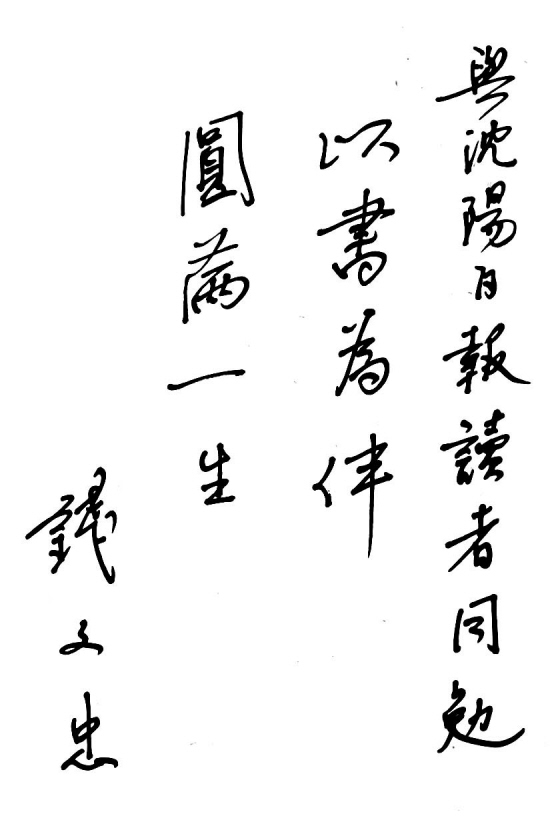 與沈陽日報讀者同勉
以書為伴
圓滿一生
錢文忠